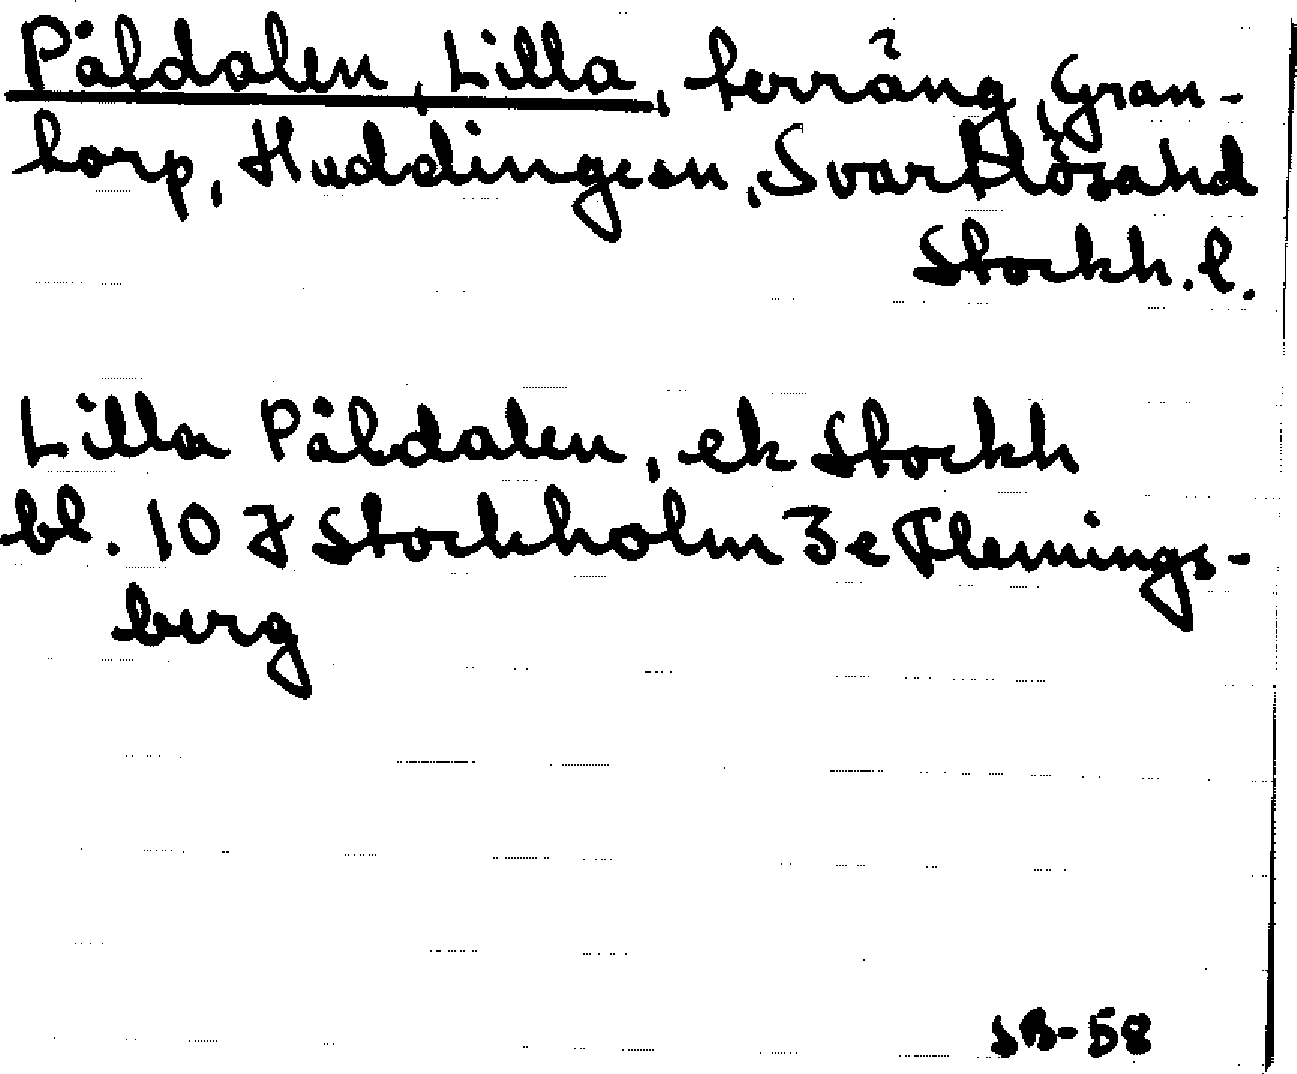 Påldalen, Lilla, terräng, Gran-
torp, Huddinge sn, Svartlösa hd
Stockh. l.
Lilla Påldalen, ek Stockh
bl. 10 J Stockholm 3e Flemings-
berg
SB-58